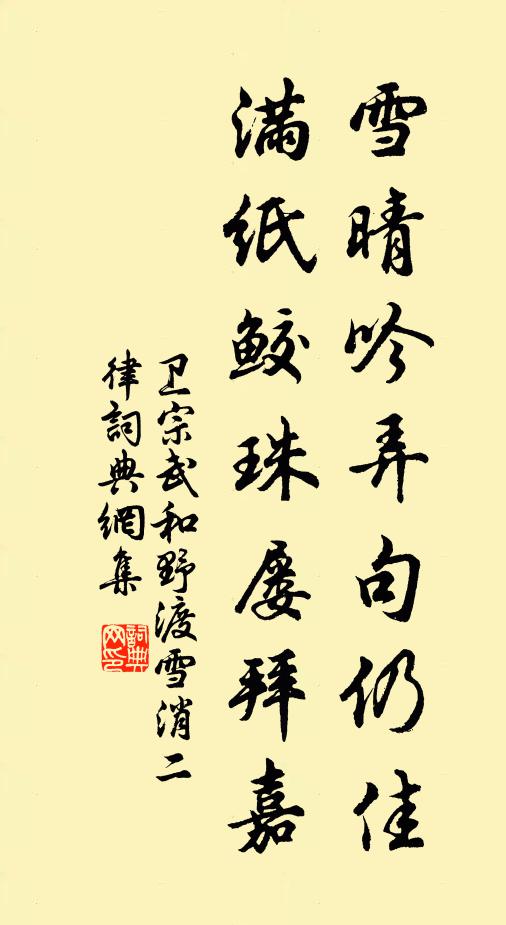 雪晴吟弄句仍佳
满纸鲛珠屡拜嘉
卫宗武和野渡雪消二
律詞典網集
詞典
网印